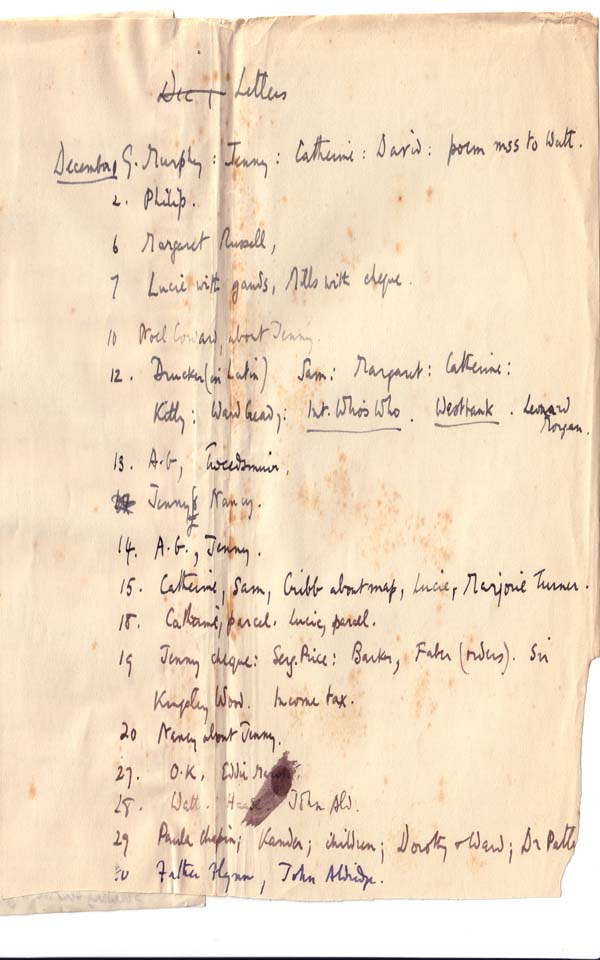 Dec 1 Letters
December 1 G. Murphy : Jenny : Catherine : David : poem mss to Watt.
2. Philip.
6 Margaret Russell,
7 Lucie with goods, Mills with cheque.
10 Noel Coward, about Jenny.
12. Drucker (in Latin) Sam : Margaret : Catherine :
Kitty : Ward : Int. Who's Who. Westbank. Leonard
Morgan.
13. A.G., Tweedsmuir,
Jenny & Nancy.
14. A.G., Jenny.
15. Catherine, Sam, Cribb about map, Lucie, Marjorie Turner.
18. Catherine, parcel. Lucie, parcel.
19 Jenny cheque : Seg. Price : Barker, Faber (orders). Sir
Kingsley Wood. Income tax.
20 Nancy about Jenny.
27. O.K, Eddie
28. Watt. John Ald.
29 Paula Chapin; Kander; children; Dorothy & Ward; Dr
30 Father Flynn, John Aldridge.